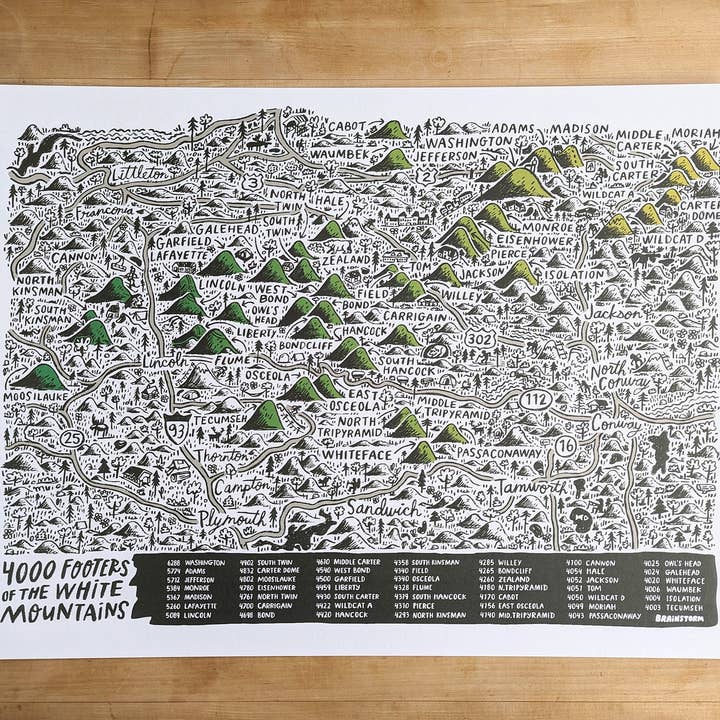 CABOT
ADAMS MADISON
MIDDLE
CARTER
MORIAH
WASHINGTON
WAUMBEK
JEFFERSON
SOUTH
CARTER
2
Littleton
3
WILDCAT A
NORTH
TWIN
HALE
CARTER
DOME
Franconia
SOUTH
TWIN
GALEHEAD
MONROE
GARFIELD
EISENHOWER
WILDCAT D
LAFAYETTE
ZEALAND
PIERCE
CANNON
TOM
JACKSON
ISOLATION
NORTH
KINSMAN
LINCOLN
WEST
BOND
FIELD
WILLEY
SOUTH
KINSMAN
OWL'S
HEAD
BOND
CARRIGAIN
Jackson
LIBERTY
HANCOCK
302
BONDCLIFF
Lincoln
FLUME
SOUTH
HANCOCK
North
Conway
OSCEOLA
MOOSILAUKE
EAST
OSCEOLA
MIDDLE
TRIPYRAMID
112
TECUMSEH
NORTH
TRIPYRAMID
Conway
93
25
16
Thornton
WHITEFACE
PASSACONAWAY
Campton
Tamworth
Plymouth
Sandwich
4000 FOOTERS
OF THE WHITE
MOUNTAINS
6288 WASHINGTON
5774 ADAMS
5712 JEFFERSON
5384 MONROE
5367 MADISON
5260 LAFAYETTE
5089 LINCOLN
4902 SOUTH TWIN
4832 CARTER DOME
4802 MOOSILAUKE
4780 EISENHOWER
4761 NORTH TWIN
4700 CARRIGAIN
4698 BOND
4610 MIDDLE CARTER
4540 WEST BOND
4500 GARFIELD
4459 LIBERTY
4430 SOUTH CARTER
4422 WILDCAT A
4420 HANCOCK
4358 SOUTH KINSMAN
4340 FIELD
4340 OSCEOLA
4328 FLUME
4319 SOUTH HANCOCK
4310 PIERCE
4293 NORTH KINSMAN
4285 WILLEY
4265 BONDCLIFF
4260 ZEALAND
4180 N.TRIPYRAMID
4170 CABOT
4156 EAST OSCEOLA
4140 MID.TRIPYRAMID
4100 CANNON
4054 HALE
4052 JACKSON
4051 TOM
4050 WILDCAT D
4049 MORIAH
4043 PASSACONAWAY
4025 OWL'S HEAD
4024 GALEHEAD
4020 WHITEFACE
4006 WAUMBEK
4004 ISOLATION
4003 TECUMSEH
BRAINSTORM